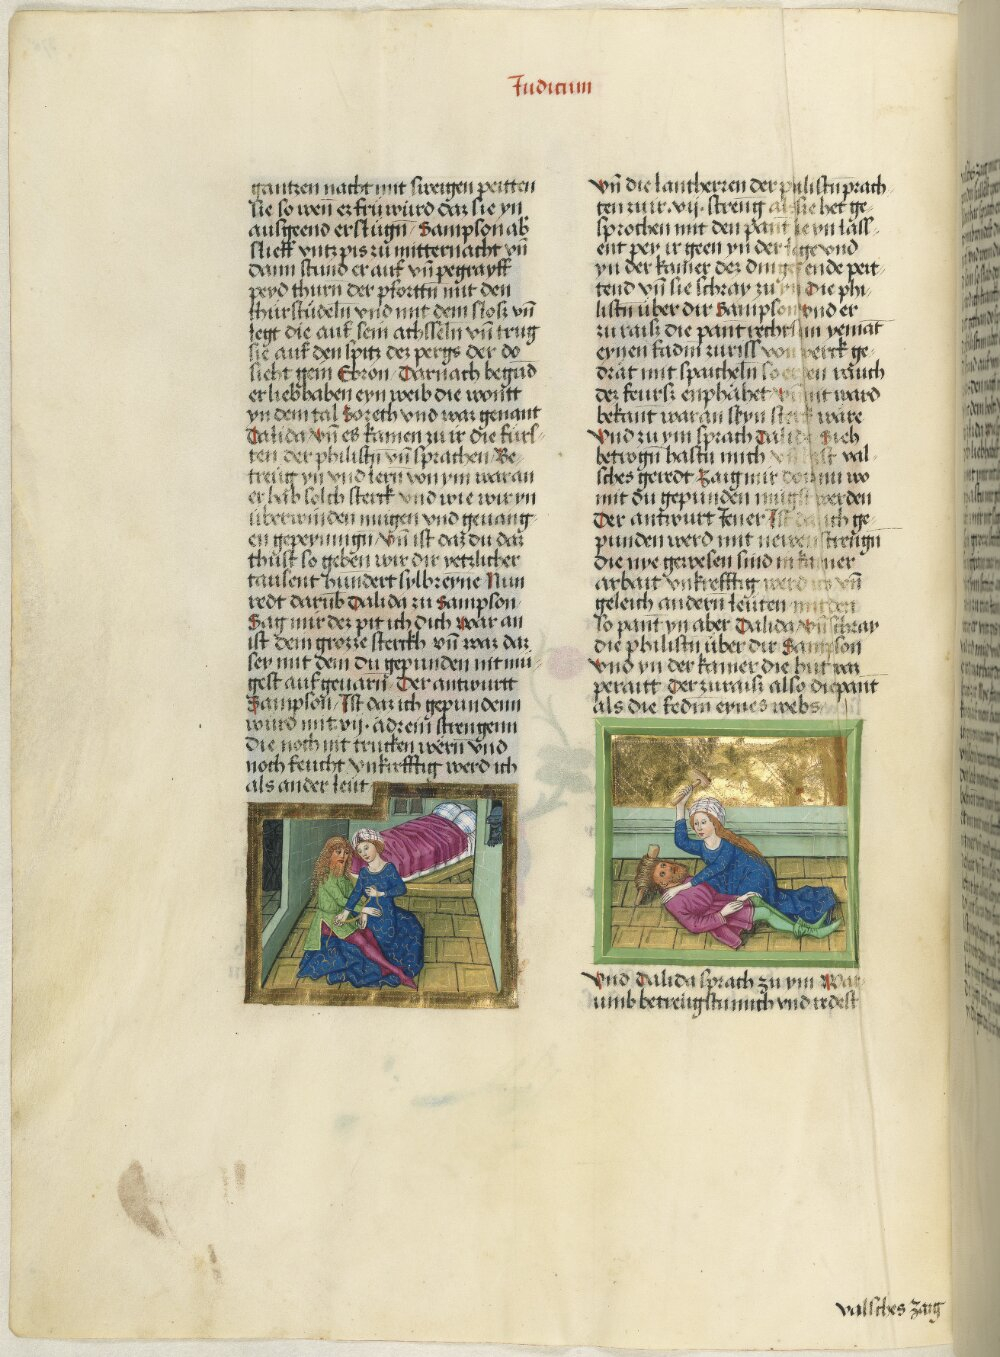 Judicum
gantzen nacht mit sweigen peitten
sie so wen er frü würd daz sie yn
ausgeend erslügn Sampson ab
slieff vntz pis zu mitternacht vn̄
dann stund er auf vn̄ pegrayff
peyd thurn der pforttn mit den
thurstudeln vnd mit dem slosz vn̄
legt die auf sein achsseln vn̄ trug
sie auf den spitz des pergs der do
sieht gein Ebron Darnach begād
er liebhaben eyn weib die wontt
yn dem tal Soreth vnd waz genant
Dalida vn̄ es kamen zu ir die fürs-
ten der philistn vn̄ sprachen Be-
treug yn vnd lern von ym waran
er hab solch sterck vnd wie wir yn
überwinden mugen vnd geuang-
en gepeynnign vn̄ ist daz du daz
thust so geben wir dir yetzlicher
tausent hundert sylbreyne Nun
redt darūb Dalida zu Sampson
Saig mir dez pit ich dich war an
ist dem grosse sterckh vn̄ waz daz
sey mit dem du gepunden nit mü-
gest auf geuarn Der antwurtt
Sampson Ist daz ich gepundenn
wurd mit vij adrein strengenn
die noch nit trucken wern vnd
noch feucht vnkrefftig werd ich
als ander leut
vn̄ die lantherren der philistn prach-
ten zu ir vij streng als sie het ge-
sprochen mit den pant sie yn lass-
ent pey ir geen yn der lage vnd
yn der kamer dez dings ende peit-
tend vn̄ sie schray zu ym Die phi-
listn über dir Sampson vnd er
zu raisz die pant rechts in yemāt
eynen fadm zurisz von werck ge-
drāt mit spaicheln so er den rauch
dez feurs enphāhet vn̄ nit ward
bekant war an seyn sterk wāre
Vnd zu ym sprach Dalida Sieh
betrogn hastu mich vn̄ hast val-
sches geredt Zaig mir doch nu wo
mit du gepunden mugst werden
Der antwurt Jener Ist daz ich ge-
punden werd mit newen strengn
die nye gewesen sind in kainer
arbait vnkrefftig werd ich vn̄
geleich andern leuten
so pant yn aber Dalida vn̄ schray
die philistn über dir Sampson
vnd yn der kamer die hut waz
peraitt Der zuraisz also die pant
als die fedm eynes webs
Vnd Dalida sprach zu ym War
umb betreugstu mich vnd redest
valsches zaig